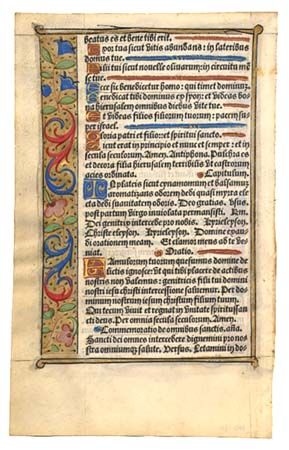 beatus es et bene tibi erit.
Uxor tua sicut vitis abundans: in lateribus
domus tue.
Filii tui sicut novelle olivarum: in circuitu mē
se tue.
Ecce sic benedicetur homo: qui timet dominum.
Benedicat tibi dominus ex syon: et videas bo
na hierusalem omnibus diebus vite tue.
Et videas filios filiorum tuorum: pacem su
per israel.
Gloria patri et filio: et spiritui sancto.
Sicut erat in principio et nunc et semper: et in
secula seculorum. Amen. Antiphona. Pulchra es
et decora filia hierusalem terribilis ut castrorum
acies ordinata. Capitulum.
In plateis sicut cynamomum et balsamū
aromatizans odorem dedi quasi myrra ele
cta dedi suavitatem odoris. Deo gratias. Vsus.
post partum virgo inviolata permansisti. Rm.
Dei genitrix intercede pro nobis. Kyrieleyson.
Christe eleyson. Kyrieleyson. Domine exau
di orationem meam. Et clamor meus ad te ve
niat. Oratio.
Famulorum tuorum quesumus domine de
lictis ignosce: ut qui tibi placere de actibus
nostris non valemus: genitricis filii tui domini
nostri iesu christi intercessione salvemur. Per do
minum nostrum iesum christum filium tuum.
Qui tecum vivit et regnat in unitate spiritussan
cti deus. Per omnia secula seculorum. Amen.
Commemoratio de omnibus sanctis. aña.
Sancti dei omnes intercedere dignemini pro no
stra omniumque salute. Versus. Letamini in do-